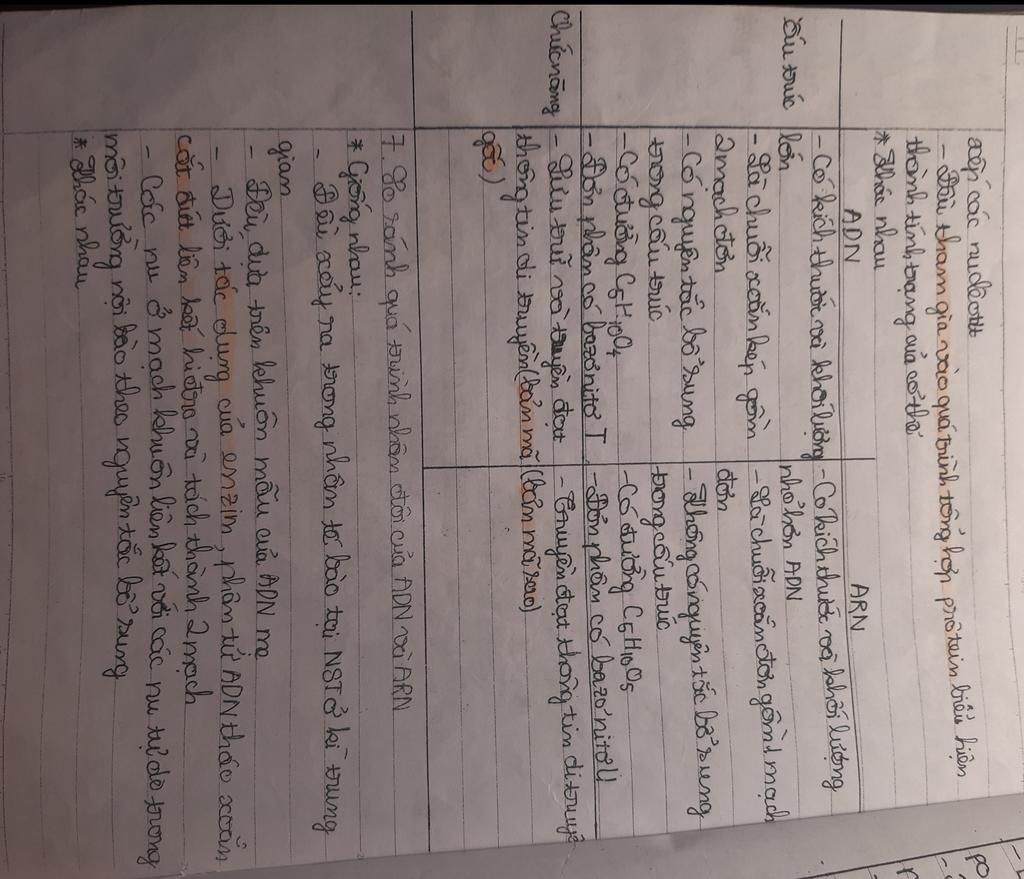 xếp các nuclêôtit
- Đều tham gia vào quá trình tổng hợp prôtein biểu hiện
thành tính trạng của cơ thể
* Khác nhau
ADN
ARN
ấu trúc
- Có kích thước và khối lượng
lớn
- Là chuỗi xoắn kép gồm
2 mạch đơn
- Có nguyên tắc bổ sung
trong cấu trúc
- Có đường C5H10O4
- Đơn phân có bazơ nitơ T
- Có kích thước và khối lượng
nhỏ hơn ADN
- Là chuỗi xoắn đơn gồm 1 mạch
đơn
- Không có nguyên tắc bổ sung
trong cấu trúc
- Có đường C5H10O5
- Đơn phân có bazơ nitơ U
Chức năng
- Lưu trữ và truyền đạt
thông tin di truyền (bản mã
gốc)
- Truyền đạt thông tin di truyề
(bản mã sao)
7. So sánh quá trình nhân đôi của ADN và ARN
* Giống nhau:
- Đều xảy ra trong nhân tế bào tại NST ở kì trung
gian
- Đều dựa trên khuôn mẫu của ADN mẹ
- Dưới tác dụng của enzim, phân tử ADN tháo xoắn
cắt đứt liên kết hiđro và tách thành 2 mạch
- Các nu ở mạch khuôn liên kết với các nu tự do trong
môi trường nội bào theo nguyên tắc bổ sung
* Khác nhau